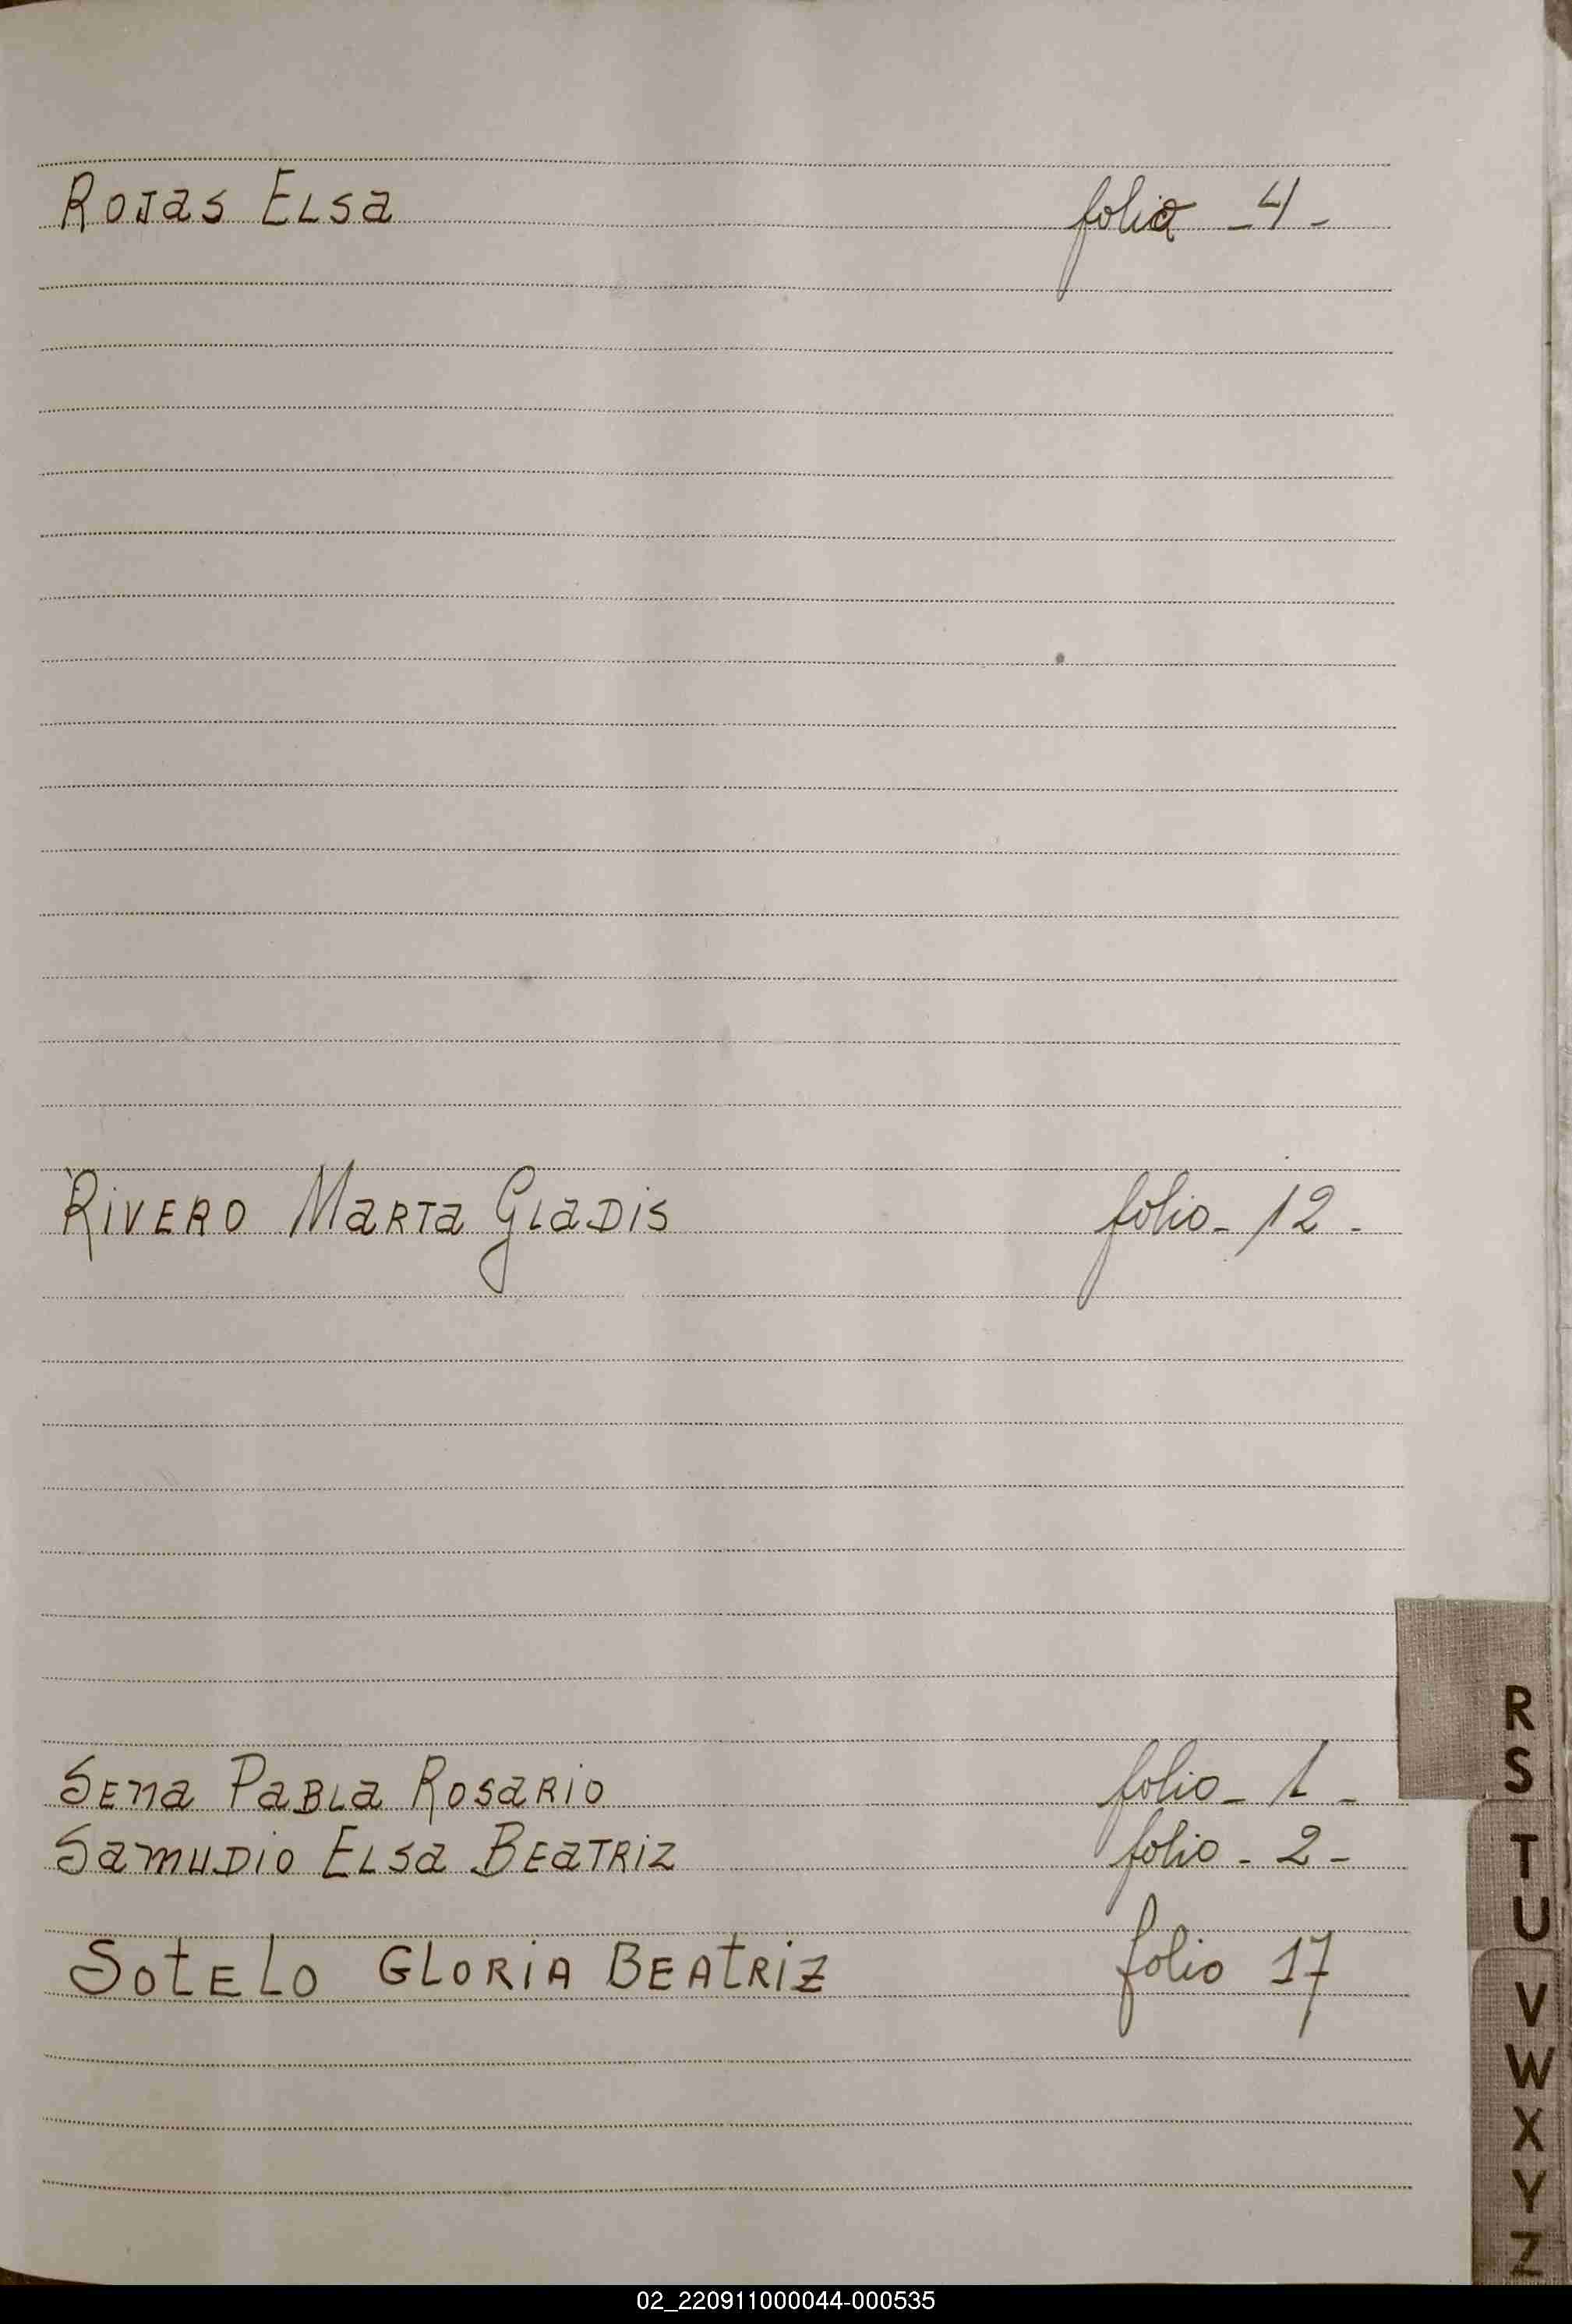 Rojas Elsa folio - 4 -
Rivero Marta Gladis folio - 12 -
Sena Pabla Rosario folio - 1 -
Samudio Elsa Beatriz folio - 2 -
Sotelo Gloria Beatriz folio 17
R
S
T
U
V
W
X
Y
Z
02_220911000044-000535